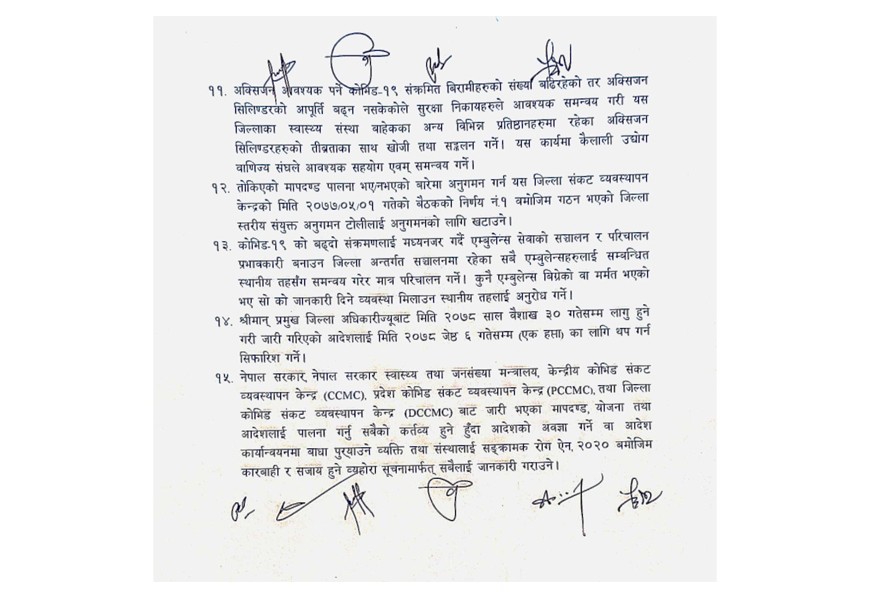 ११. अक्सिजन आवश्यक पर्ने कोभिड-१९ संक्रमित बिरामीहरुको संख्या बढिरहेको तर अक्सिजन
सिलिण्डरको आपूर्ति बढ्न नसकेकोले सुरक्षा निकायहरुले आवश्यक समन्वय गरी यस
जिल्लाका स्वास्थ्य संस्था बाहेकका अन्य विभिन्न प्रतिष्ठानहरुमा रहेका अक्सिजन
सिलिण्डरहरुको तीब्रताका साथ खोजी तथा सङ्कलन गर्ने। यस कार्यमा कैलाली उद्योग
वाणिज्य संघले आवश्यक सहयोग एवम् समन्वय गर्ने।
१२. तोकिएको मापदण्ड पालना भए/नभएको बारेमा अनुगमन गर्न यस जिल्ला संकट व्यवस्थापन
केन्द्रको मिति २०७७/०५/०१ गतेको बैठकको निर्णय नं.१ वमोजिम गठन भएको जिल्ला
स्तरीय संयुक्त अनुगमन टोलीलाई अनुगमनको लागि खटाउने।
१३. कोभिड-१९ को बढ्दो संक्रमणलाई मध्यनजर गर्दै एम्बुलेन्स सेवाको सञ्चालन र परिचालन
प्रभावकारी बनाउन जिल्ला अन्तर्गत सञ्चालनमा रहेका सबै एम्बुलेन्सहरुलाई सम्बन्धित
स्थानीय तहसँग समन्वय गरेर मात्र परिचालन गर्ने। कुनै एम्बुलेन्स बिग्रेको वा मर्मत भएको
भए सो को जानकारी दिने व्यवस्था मिलाउन स्थानीय तहलाई अनुरोध गर्ने।
१४. श्रीमान् प्रमुख जिल्ला अधिकारीज्यूबाट मिति २०७८ साल बैशाख ३० गतेसम्म लागु हुने
गरी जारी गरिएको आदेशलाई मिति २०७८ जेष्ठ ६ गतेसम्म (एक हप्ता) का लागि थप गर्न
सिफारिश गर्ने।
१५. नेपाल सरकार, नेपाल सरकार स्वास्थ्य तथा जनसंख्या मन्त्रालय, केन्द्रीय कोभिड संकट
व्यवस्थापन केन्द्र (CCMC), प्रदेश कोभिड संकट व्यवस्थापन केन्द्र (PCCMC), तथा जिल्ला
कोभिड संकट व्यवस्थापन केन्द्र (DCCMC) बाट जारी भएका मापदण्ड, योजना तथा
आदेशलाई पालना गर्नु सबैको कर्तव्य हुने हुँदा आदेशको अवज्ञा गर्ने वा आदेश
कार्यान्वयनमा बाधा पुर्‍याउने व्यक्ति तथा संस्थालाई सङ्क्रामक रोग ऐन, २०२० बमोजिम
कारबाही र सजाय हुने व्यहोरा सूचनामार्फत् सबैलाई जानकारी गराउने।